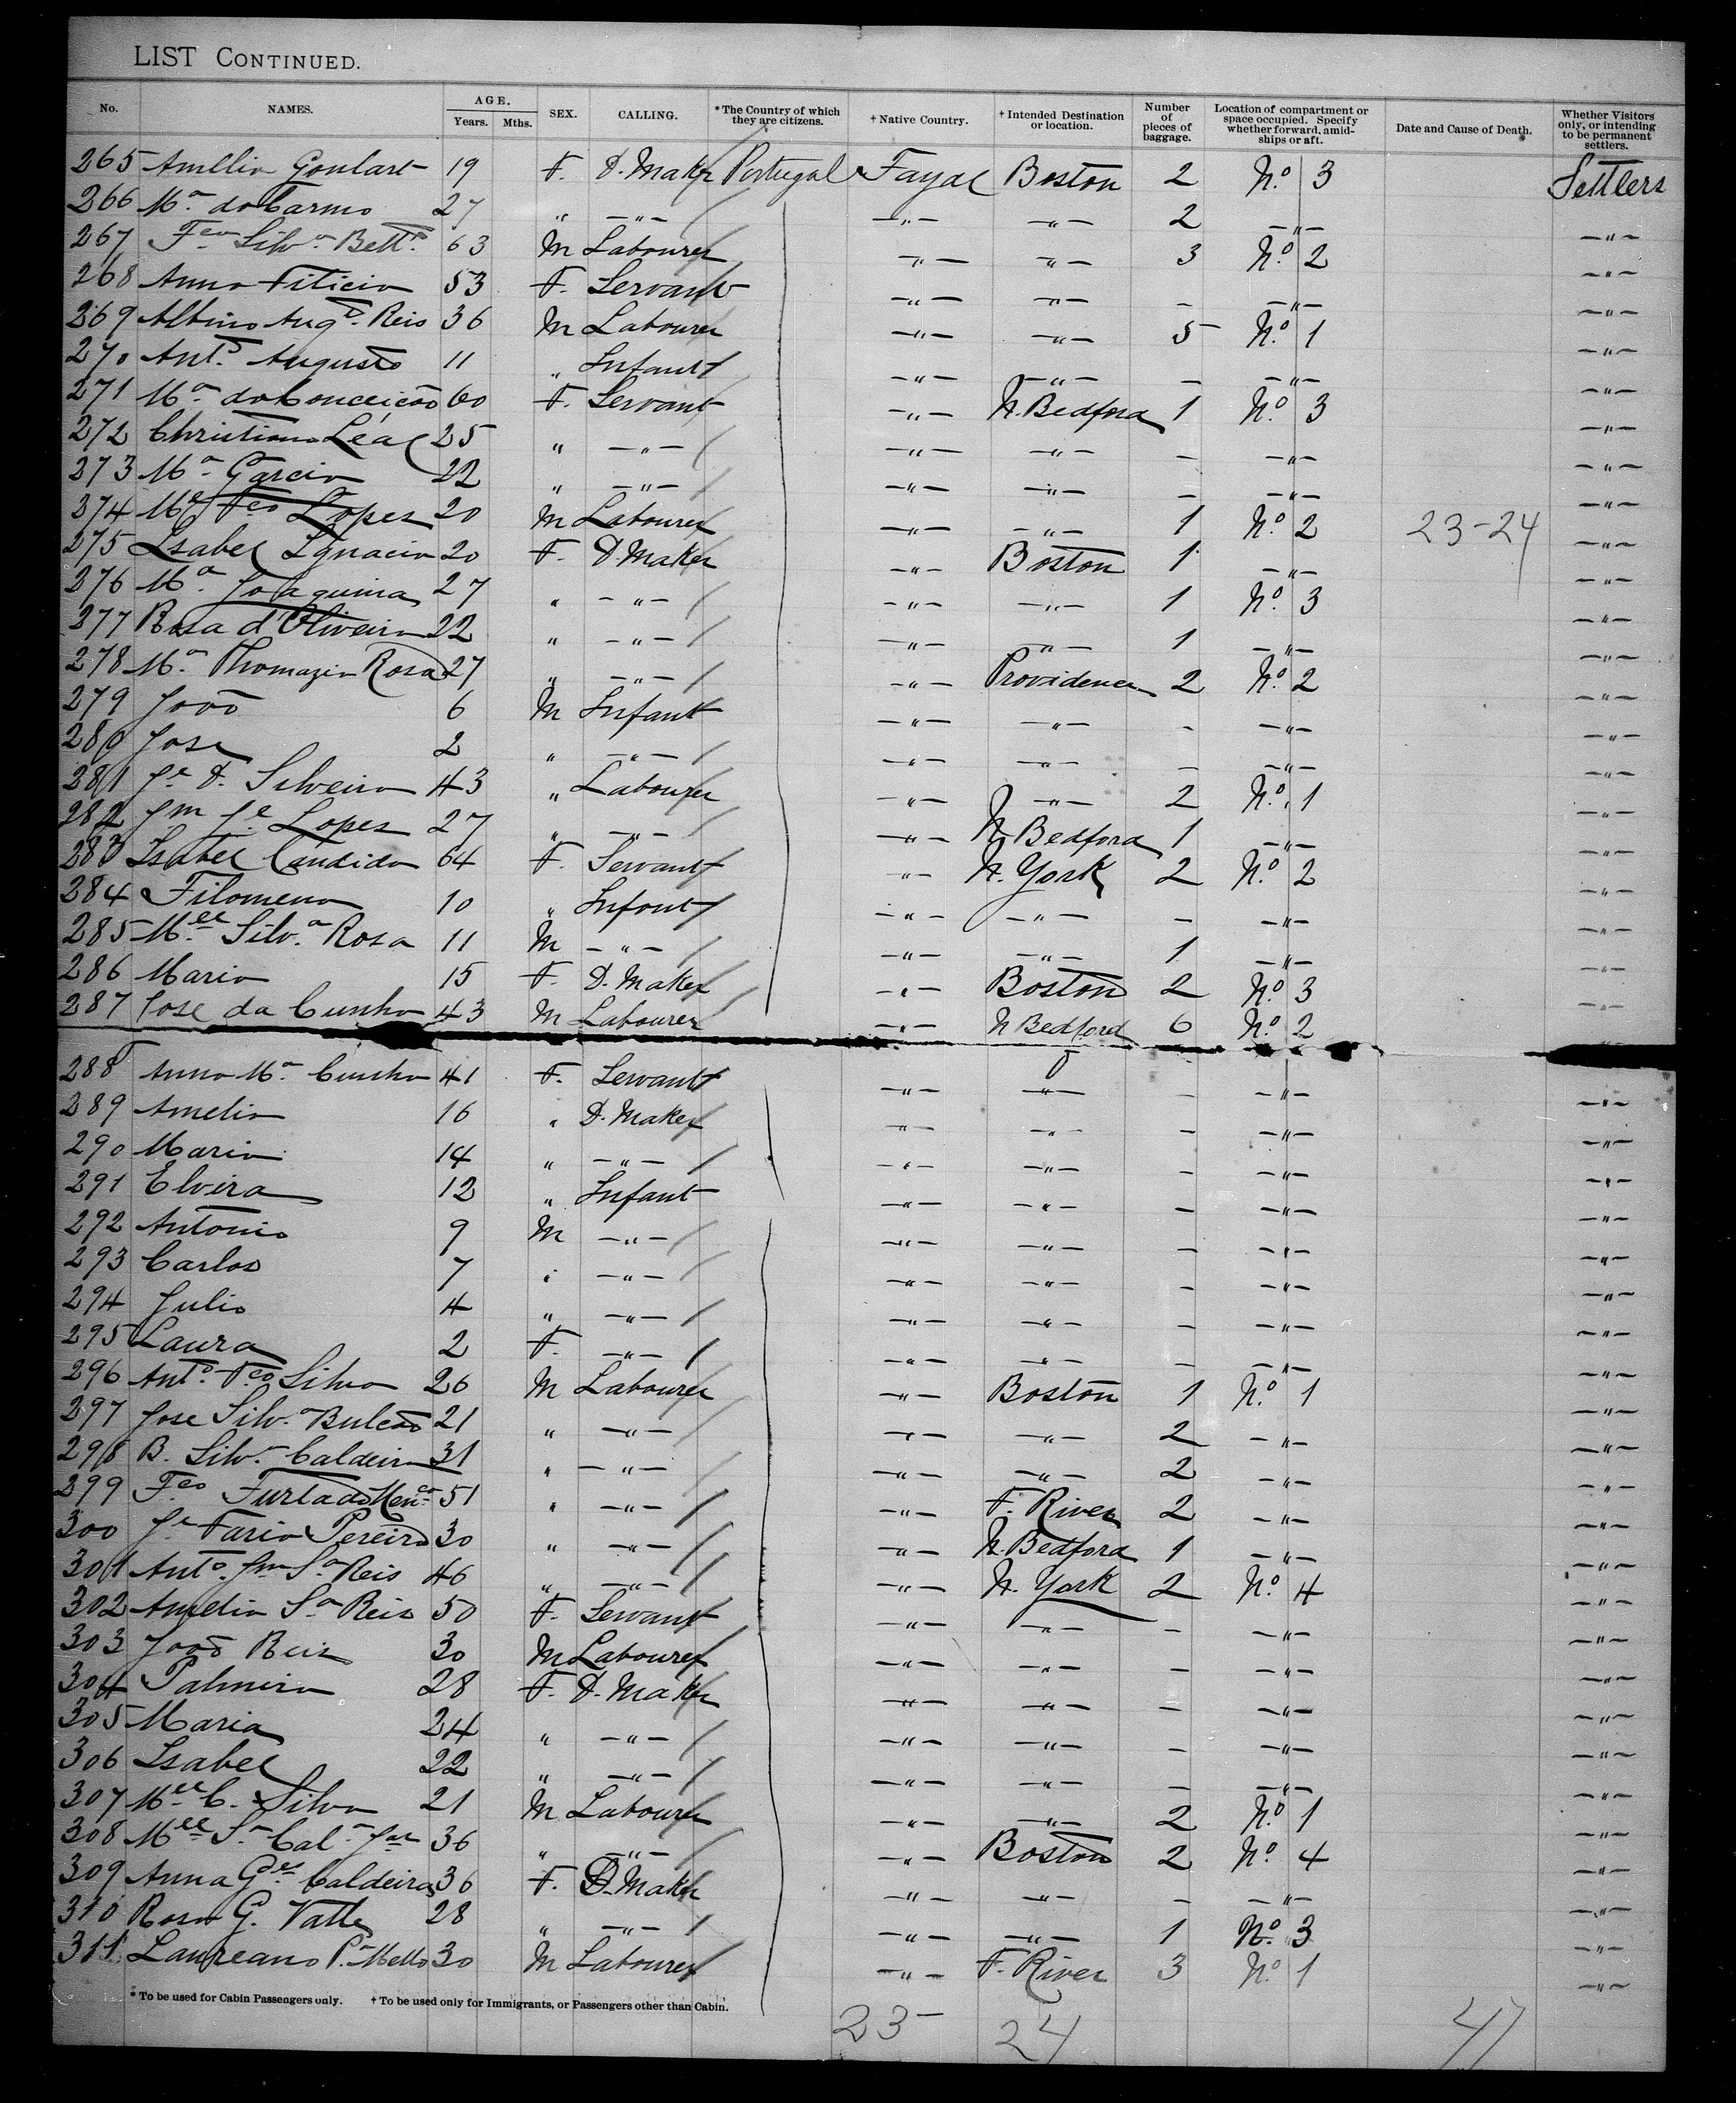 LIST CONTINUED.
No. NAMES. AGE. Years. Mths. SEX. CALLING. * The Country of which they are citizens. † Native Country. † Intended Destination or location. Number of pieces of baggage. Location of compartment or space occupied. Specify whether forward, amidships or aft. Date and Cause of Death. Whether Visitors only, or intending to be permanent settlers.
265 Amellia Goulart 19 F. D. Maker Portugal Fayal Boston 2 No. 3 Settlers
266 Ma. do Carmo 27 " —"— —"— —"— 2 —"— —"—
267 Silva. Bett. 63 M Labourer —"— —"— 3 No. 2 —"—
268 Anna Feticia 53 F. Servant —"— —"— - —"— —"—
269 Albino Augo. Reis 36 M Labourer —"— —"— 5 No. 1 —"—
270 Anto. Augusto 11 " Infant —"— —"— - —"— —"—
271 Ma. da Conceicão 60 F. Servant —"— N. Bedford 1 No. 3 —"—
272 Christiana Léal 25 " —"— —"— —"— - —"— —"—
273 Ma. Garcia 22 " —"— —"— —"— - —"— —"—
274 Ml. Fco Lopes 20 M Labourer —"— —"— 1 No. 2 23-24 —"—
275 Isabel Ignacia 20 F. D. Maker —"— Boston 1 —"— —"—
276 Ma. Joaquina 27 " —"— —"— —"— 1 No. 3 —"—
277 Rosa d'Oliveira 22 " —"— —"— —"— 1 —"— —"—
278 Ma. Thomazia Rosa 27 " —"— —"— Providence 2 No. 2 —"—
279 João 6 M Infant —"— —"— - —"— —"—
280 Jose 2 " —"— —"— —"— - —"— —"—
281 Je D. Silveira 43 " Labourer —"— —"— 2 No. 1 —"—
282 Jm Je Lopes 27 " —"— —"— N. Bedford 1 —"— —"—
283 Isabel Candida 64 F. Servant —"— N. York 2 No. 2 —"—
284 Filomena 10 " Infant —"— —"— - —"— —"—
285 Mel Silva. Rosa 11 M —"— —"— —"— 1 —"— —"—
286 Maria 15 F. D. Maker —"— Boston 2 No. 3 —"—
287 Jose da Cunha 43 M Labourer —"— N Bedford 6 No. 2 —"—
288 Anna Ma. Cunha 41 F. Servant —"— —"— - —"— —"—
289 Amelia 16 " D. Maker —"— —"— - —"— —"—
290 Maria 14 " —"— —"— —"— - —"— —"—
291 Elvira 12 " Infant —"— —"— - —"— —"—
292 Antonio 9 M —"— —"— —"— - —"— —"—
293 Carlos 7 " —"— —"— —"— - —"— —"—
294 Julio 4 " —"— —"— —"— - —"— —"—
295 Laura 2 F. —"— —"— —"— - —"— —"—
296 Anto. Fco Silva 26 M Labourer —"— Boston 1 No. 1 —"—
297 Jose Silv. Bulcão 21 " —"— —"— —"— 2 —"— —"—
298 B. Silv. Caldeira 31 " —"— —"— —"— 2 —"— —"—
299 Fco Furtado 51 " —"— —"— F. River 2 —"— —"—
300 Je Faria Pereira 30 " —"— —"— N. Bedford 1 —"— —"—
301 Anto. Jm Sa Reis 46 " —"— —"— N. York 2 No. 4 —"—
302 Amelia Sa Reis 50 F. Servant —"— —"— - —"— —"—
303 João Reis 30 M Labourer —"— —"— - —"— —"—
304 Palmira 28 F. D. Maker —"— —"— - —"— —"—
305 Maria 24 " —"— —"— —"— - —"— —"—
306 Isabel 22 " —"— —"— —"— - —"— —"—
307 Mel C. Silva 21 M Labourer —"— —"— 2 No. 1 —"—
308 Mel Sa Cal. 36 " —"— —"— Boston 2 No. 4 —"—
309 Anna Caldeira 36 F. D. Maker —"— —"— - —"— —"—
310 Rosa G. Valle 28 " —"— —"— —"— 1 No. 3 —"—
311 Laureano P. Mello 30 M Labourer —"— F. River 3 No. 1 —"—
* To be used for Cabin Passengers only. † To be used only for Immigrants, or Passengers other than Cabin.
23- 24 47